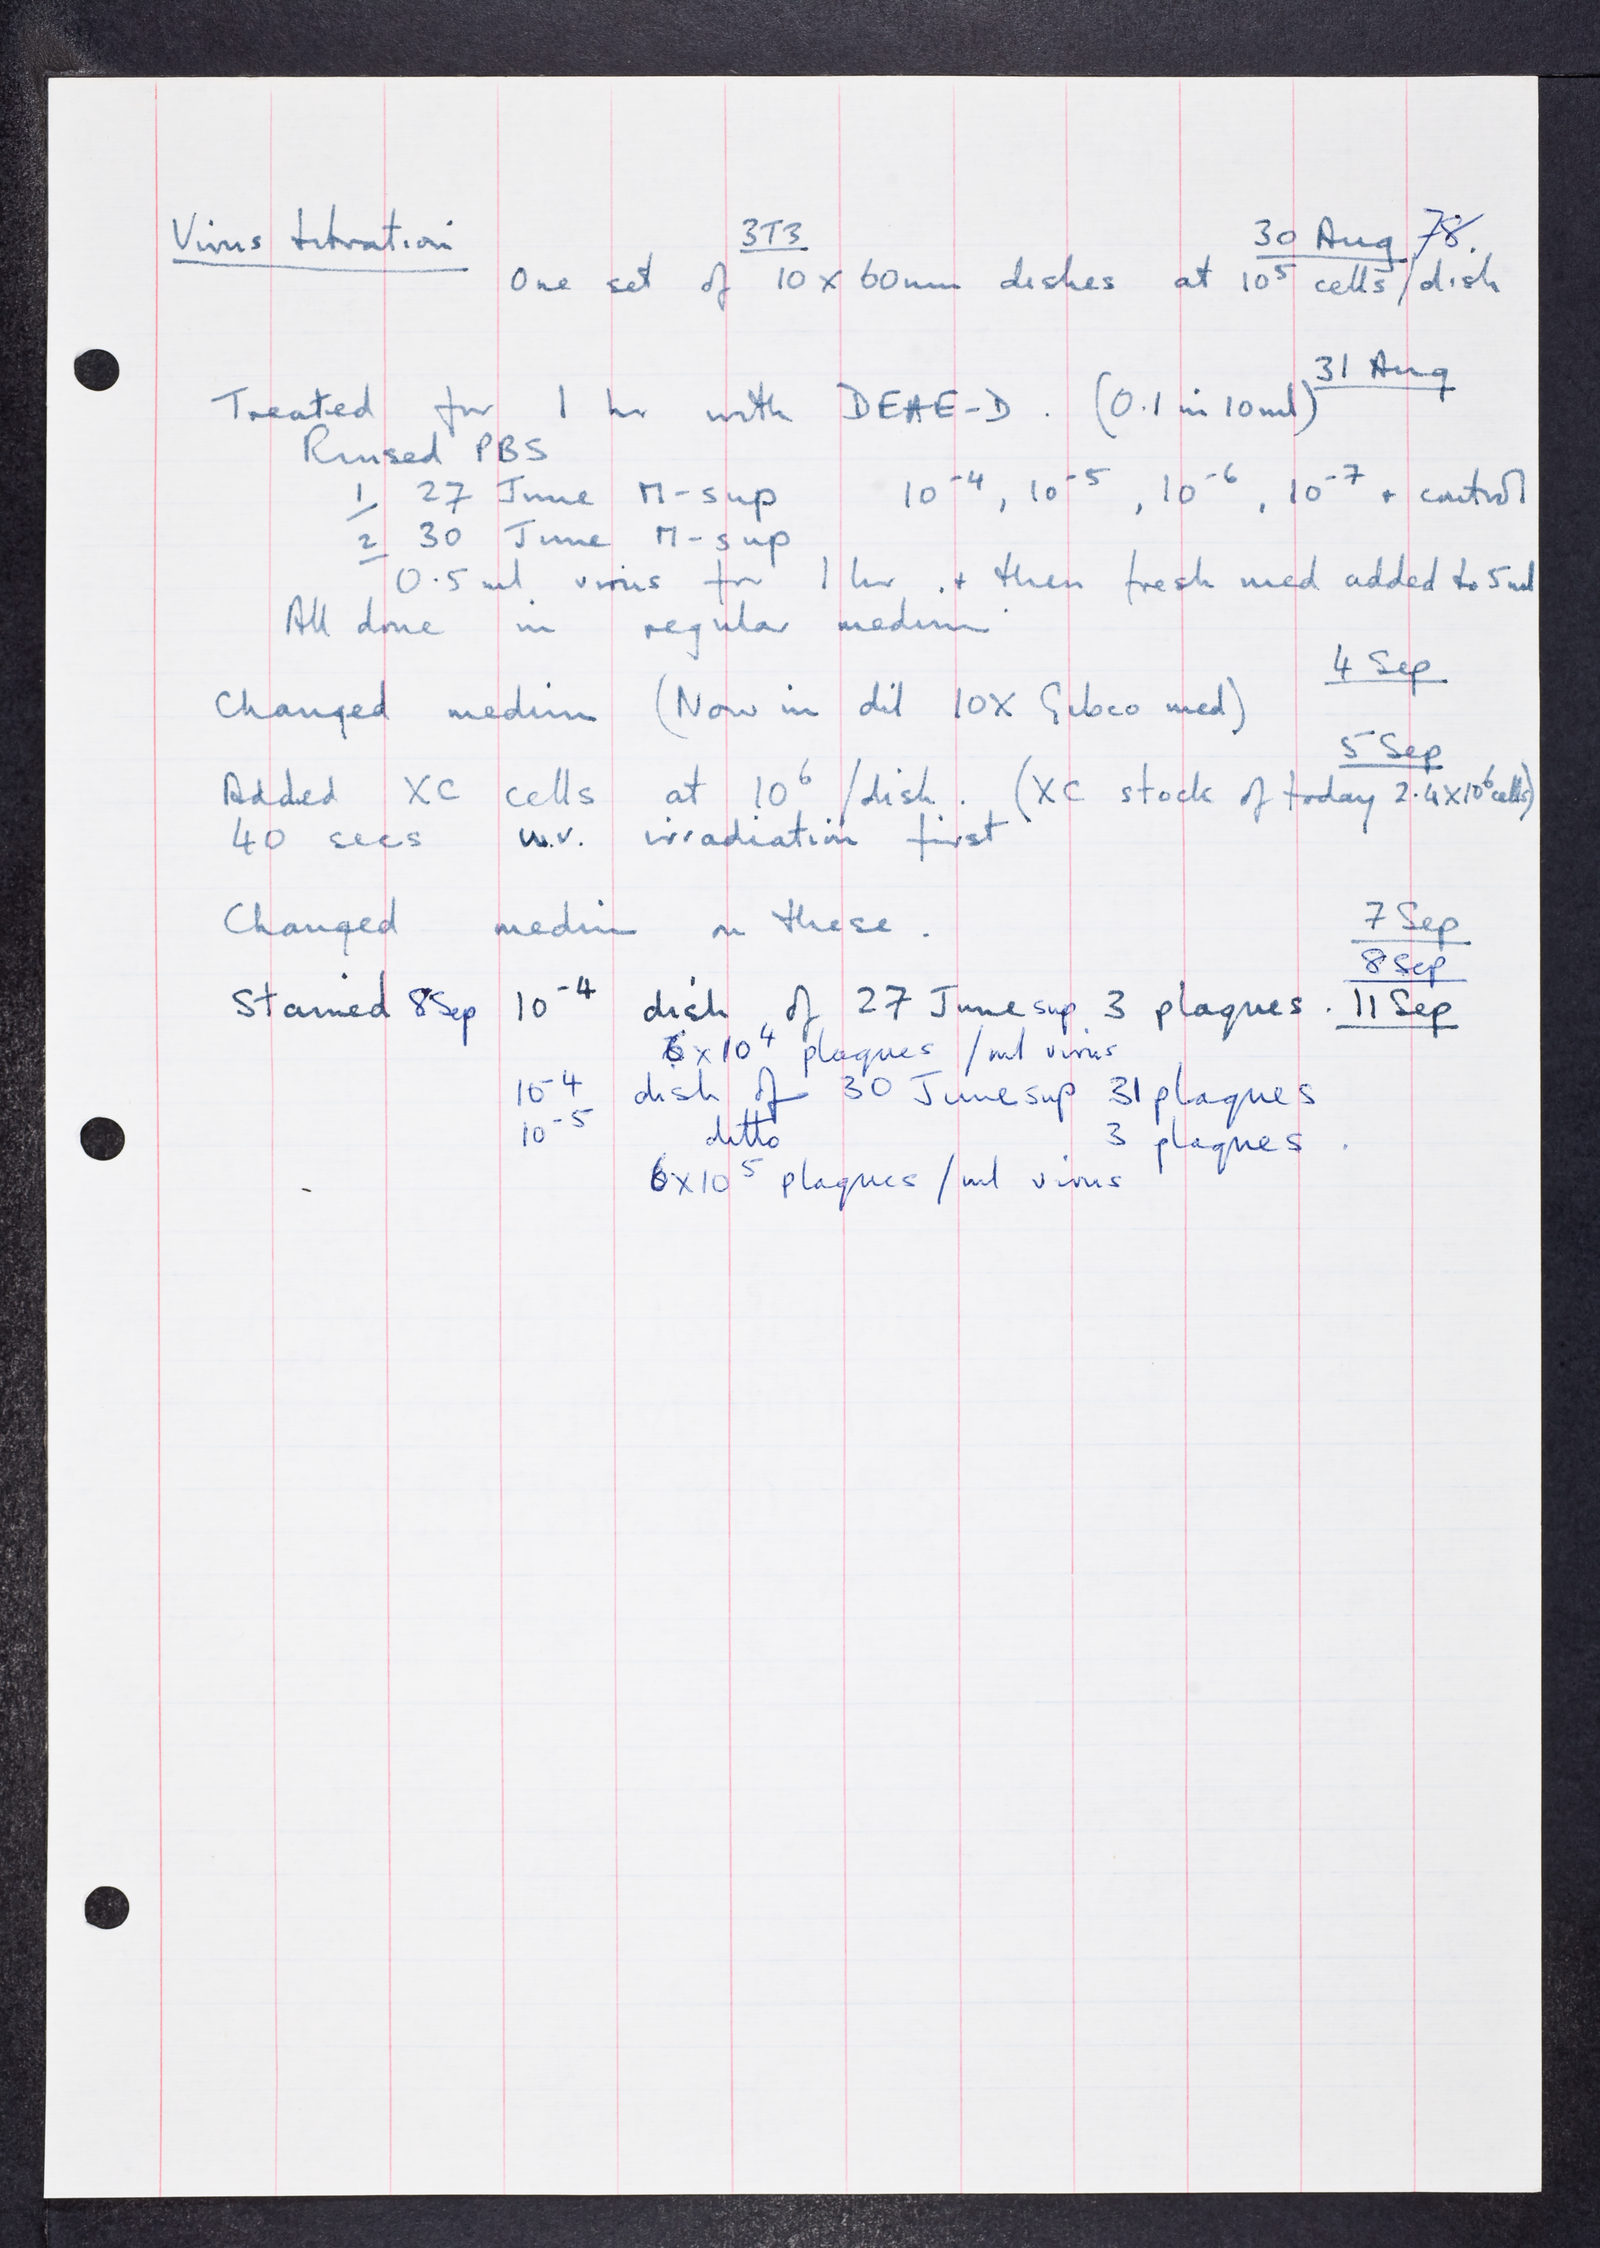 Virus titration 3T3 30 Aug 78.
One set of 10 x 60mm dishes at 10⁵ cells/dish
31 Aug
Treated for 1 hr with DEAE-D. (0.1 in 10ml)
Rinsed PBS
1/ 27 June M-sup 10⁻⁴, 10⁻⁵, 10⁻⁶, 10⁻⁷ + control
2 30 June M-sup
0.5 ml virus for 1 hr. + then fresh med added to 5 ml
All done in regular medium
4 Sep
Changed medium (Now in dil 10X Gibco med)
5 Sep
Added XC cells at 10⁶/dish. (XC stock of today 2.4x10⁶ cells)
40 secs u.v. irradiation first
Changed medium on these. 7 Sep
8 Sep
Stained 8 Sep 10⁻⁴ dish of 27 June sup 3 plaques. 11 Sep
6x10⁴ plaques/ml virus
10⁻⁴ dish of 30 June sup 31 plaques
10⁻⁵ ditto 3 plaques.
6x10⁵ plaques/ml virus